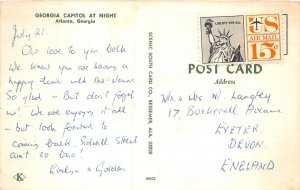 GEORGIA CAPITOL AT NIGHT
Atlanta, Georgia
July 21.
Our love to you both
We knew you are having a
happy time with the
So glad - But don't forget
us. We are enjoying it all
- but look forward to
coming back, Sidwell Street
ain't so bad!
Evelyn & Gordon
K
SCENIC SOUTH CARD CO., BESSEMER, ALA. 35020
LIBERTY FOR ALL
US
AIR MAIL
15¢
POST CARD
Address
Mr & Mrs W. Langley
17, Avenue
EXETER,
DEVON.
ENGLAND